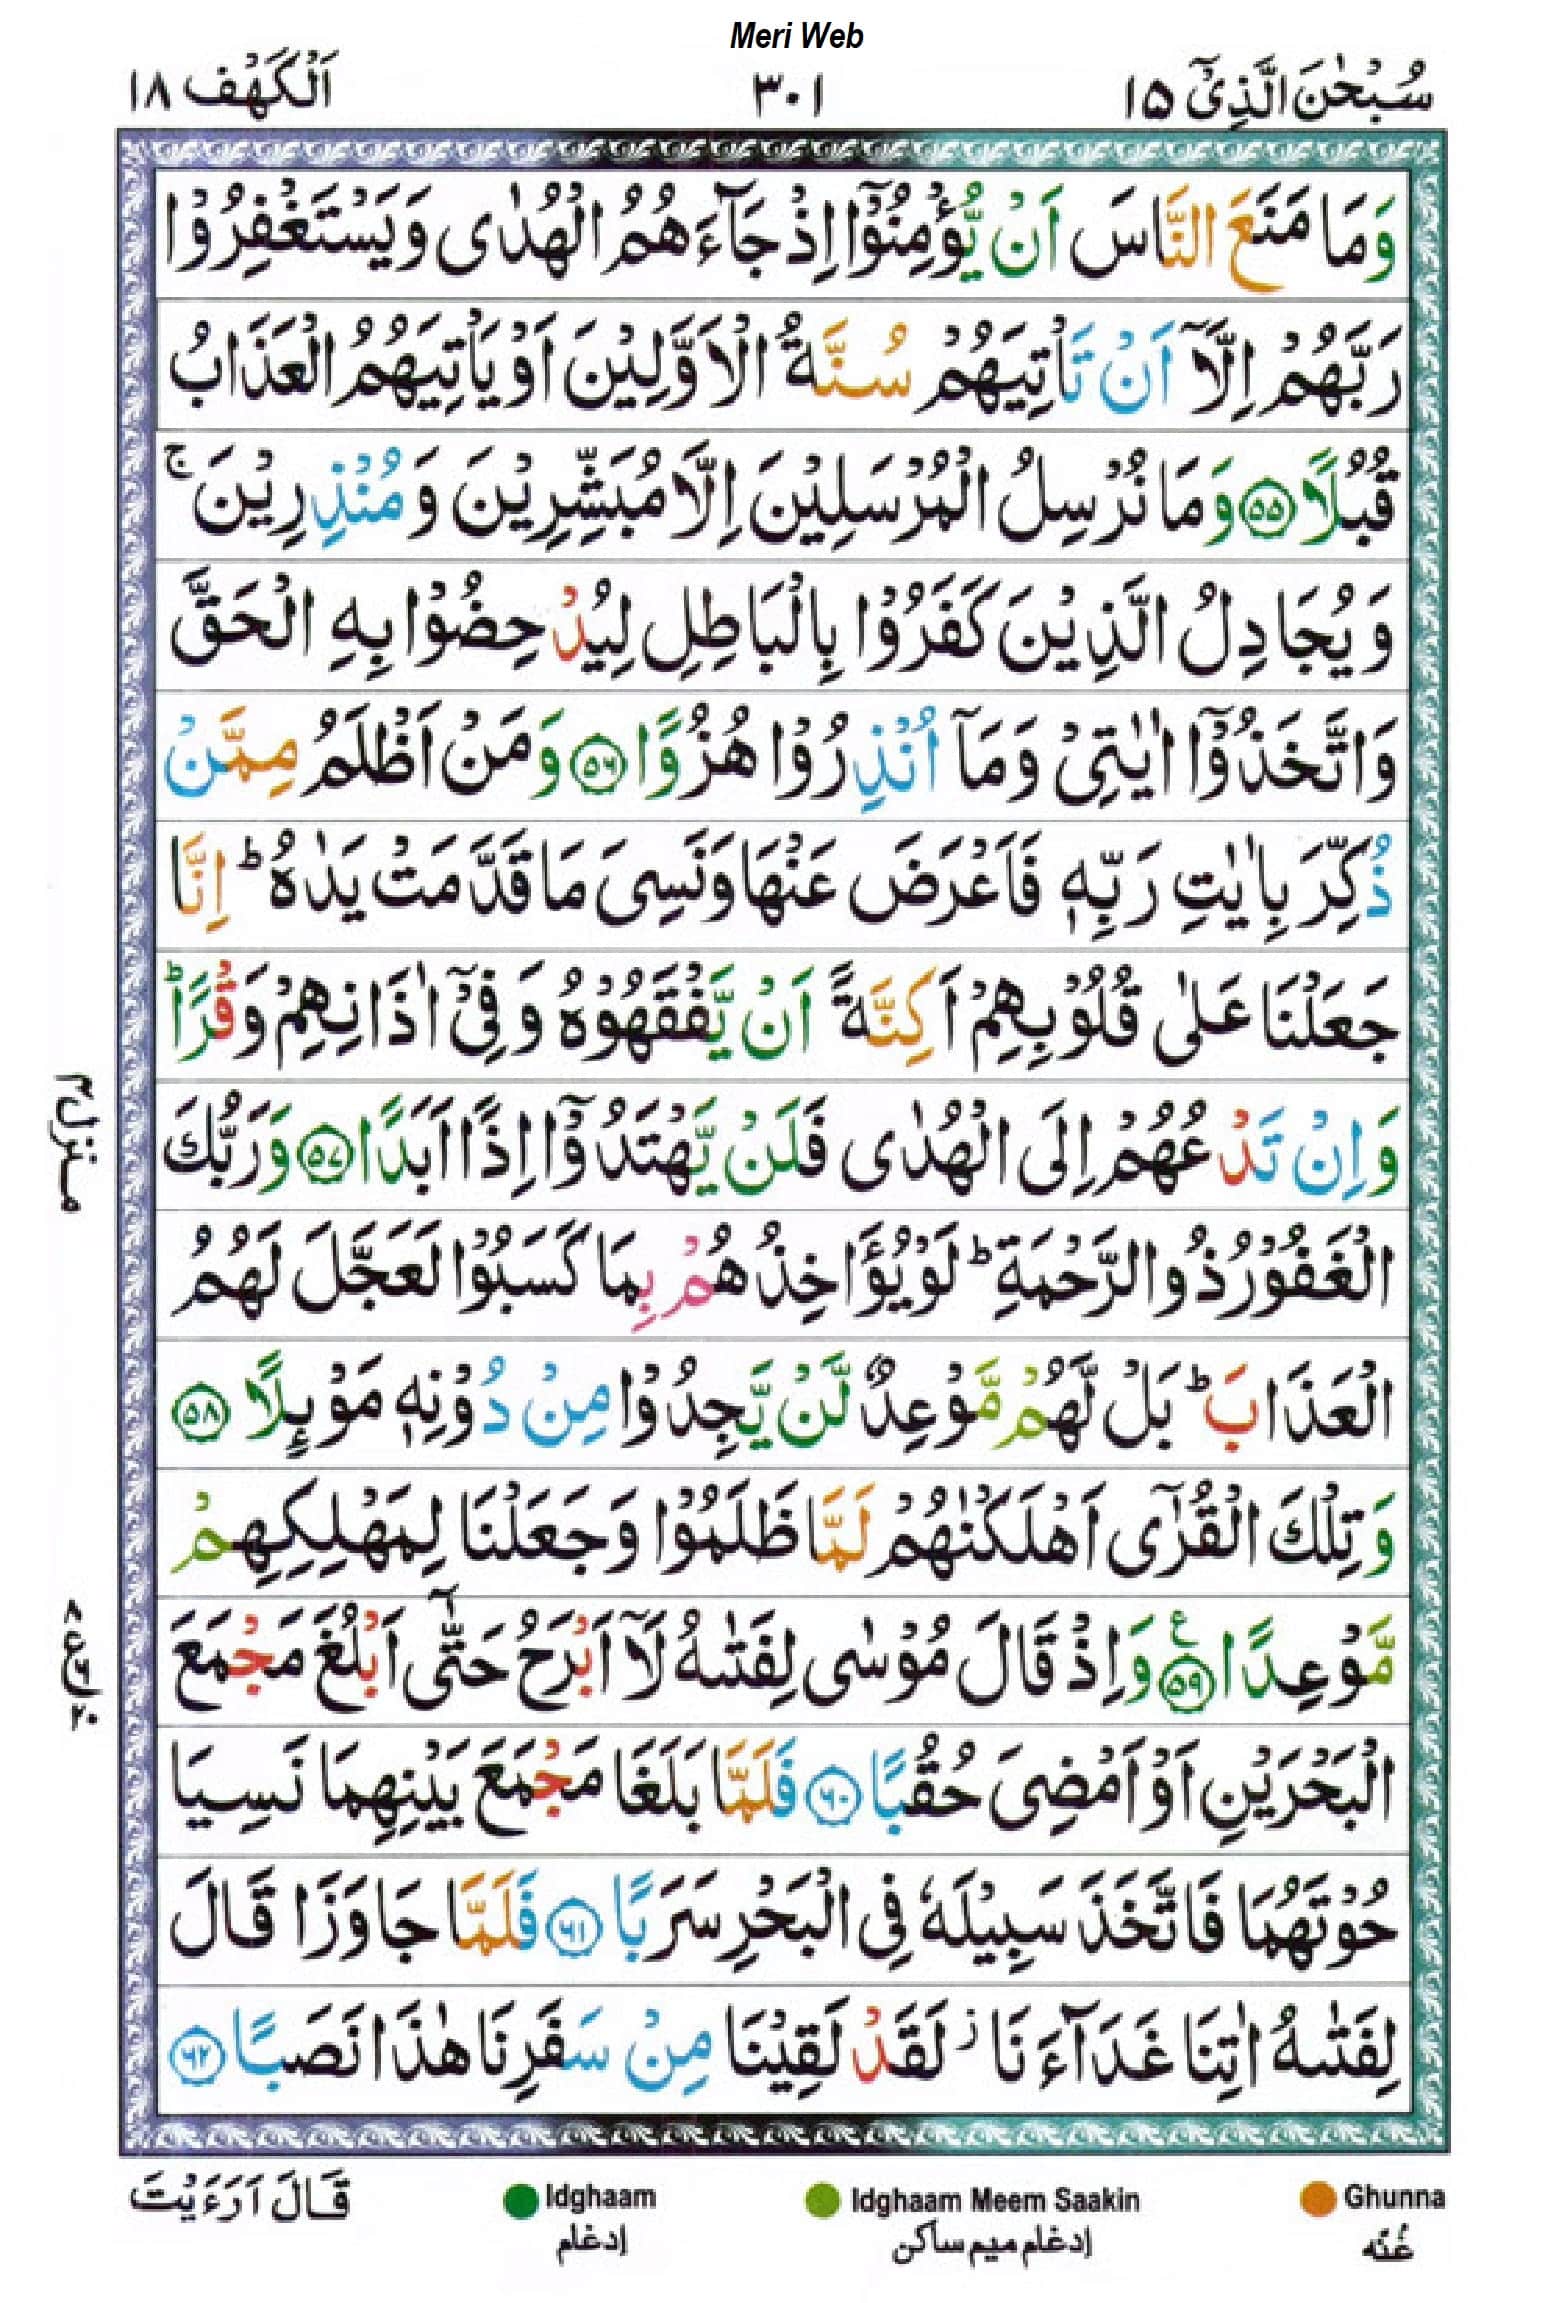 Meri Web
سُبْحٰنَ الَّذِیْۤ ۱۵
۳۰۱
اَلْكَهْف ۱۸
وَمَا مَنَعَ النَّاسَ اَنْ یُّؤْمِنُوْۤا اِذْ جَآءَهُمُ الْهُدٰى وَیَسْتَغْفِرُوْا
رَبَّهُمْ اِلَّاۤ اَنْ تَاْتِیَهُمْ سُنَّةُ الْاَوَّلِیْنَ اَوْ یَاْتِیَهُمُ الْعَذَابُ
قُبُلًا ﴿۵۵﴾ وَمَا نُرْسِلُ الْمُرْسَلِیْنَ اِلَّا مُبَشِّرِیْنَ وَمُنْذِرِیْنَ ۚ
وَیُجَادِلُ الَّذِیْنَ كَفَرُوْا بِالْبَاطِلِ لِیُدْحِضُوْا بِهِ الْحَقَّ
وَاتَّخَذُوْۤا اٰیٰتِیْ وَمَاۤ اُنْذِرُوْا هُزُوًا ﴿۵۶﴾ وَمَنْ اَظْلَمُ مِمَّنْ
ذُكِّرَ بِاٰیٰتِ رَبِّهٖ فَاَعْرَضَ عَنْهَا وَنَسِیَ مَا قَدَّمَتْ یَدٰهُ ؕ اِنَّا
جَعَلْنَا عَلٰى قُلُوْبِهِمْ اَكِنَّةً اَنْ یَّفْقَهُوْهُ وَفِیْۤ اٰذَانِهِمْ وَقْرًا ؕ
وَاِنْ تَدْعُهُمْ اِلَى الْهُدٰى فَلَنْ یَّهْتَدُوْۤا اِذًا اَبَدًا ﴿۵۷﴾ وَرَبُّكَ
الْغَفُوْرُ ذُو الرَّحْمَةِ ؕ لَوْ یُؤَاخِذُهُمْ بِمَا كَسَبُوْا لَعَجَّلَ لَهُمُ
الْعَذَابَ ؕ بَلْ لَّهُمْ مَّوْعِدٌ لَّنْ یَّجِدُوْا مِنْ دُوْنِهٖ مَوْىِٕلًا ﴿۵۸﴾
وَتِلْكَ الْقُرٰۤى اَهْلَكْنٰهُمْ لَمَّا ظَلَمُوْا وَجَعَلْنَا لِمَهْلِكِهِمْ
مَّوْعِدًا ﴿۵۹﴾ ع وَاِذْ قَالَ مُوْسٰى لِفَتٰىهُ لَاۤ اَبْرَحُ حَتّٰۤى اَبْلُغَ مَجْمَعَ
الْبَحْرَیْنِ اَوْ اَمْضِیَ حُقُبًا ﴿۶۰﴾ فَلَمَّا بَلَغَا مَجْمَعَ بَیْنِهِمَا نَسِیَا
حُوْتَهُمَا فَاتَّخَذَ سَبِیْلَهٗ فِی الْبَحْرِ سَرَبًا ﴿۶۱﴾ فَلَمَّا جَاوَزَا قَالَ
لِفَتٰىهُ اٰتِنَا غَدَآءَنَا ز لَقَدْ لَقِیْنَا مِنْ سَفَرِنَا هٰذَا نَصَبًا ﴿۶۲﴾
منزل ۴
قَالَ اَرَءَیْتَ
Idghaam
إدغام
Idghaam Meem Saakin
إدغام ميم ساكن
Ghunna
غُنّه